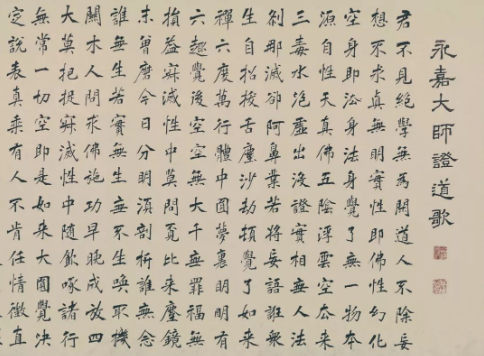 永嘉大師證道歌
君不見絕學無為閒道人不除妄
想不求真無明實性即佛性幻化
空身即法身法身覺了無一物本
源自性天真佛五陰浮雲空去來
三毒水泡虛出沒證實相無人法
剎那滅卻阿鼻業若將妄語誑眾
生自招拔舌塵沙劫頓覺了如來
禪六度萬行體中圓夢裏明明有
六趣覺後空空無大千無罪福無
損益寂滅性中莫問覓比來塵鏡
未曾磨今日分明須剖析誰無念
誰無生若實無生無不生喚取機
關木人問求佛施功早晚成放四
大莫把捉寂滅性中隨飲啄諸行
無常一切空即是如來大圓覺決
定說表真乘有人不肯任情徵直